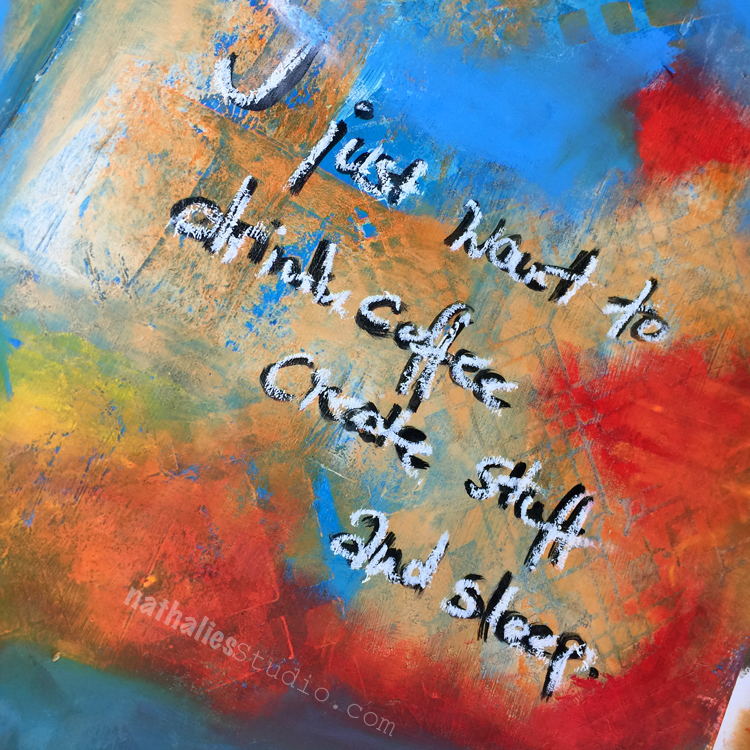 I
just want to
drink coffee
create stuff
and sleep.
nathaliesstudio.com